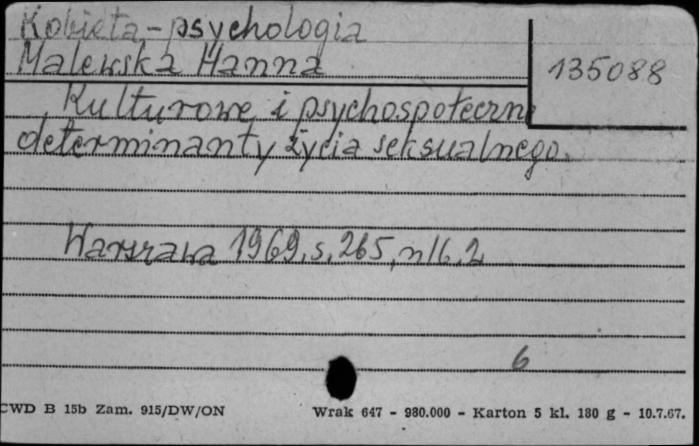 Kobieta - psychologia
Malewska Hanna
135088
Kulturowe i psychospołeczne
determinanty życia seksualnego.
Warszawa 1969, s. 265, nlb. 2
6
CWD B 15b Zam. 915/DW/ON
Wrak 647 - 980.000 - Karton 5 kl. 180 g - 10.7.67.